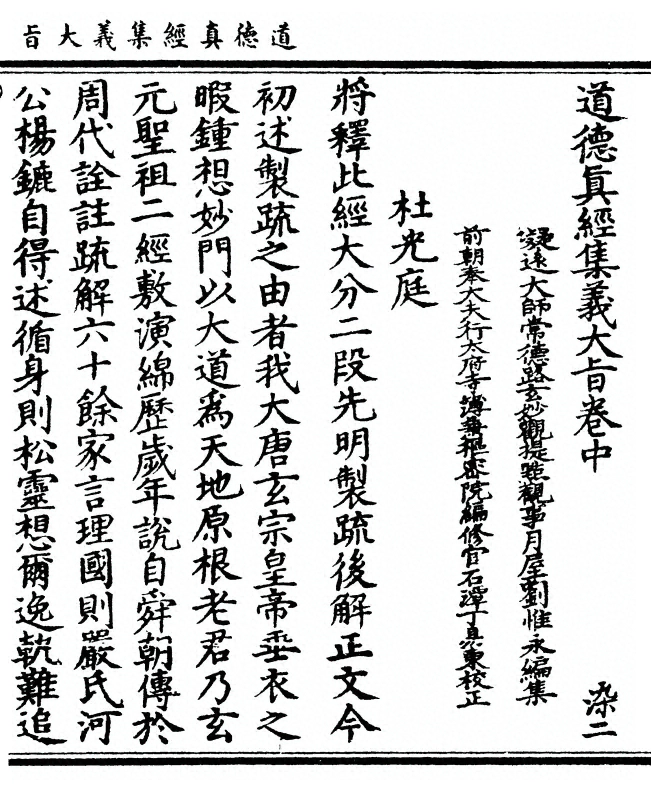 道德真經集義大旨
道德眞經集義大旨卷中
染二
凝遠大師常德路玄妙觀提點觀事月屋劉惟永編集
前朝奉大夫行太府寺簿兼樞密院編修官石潭丁易東校正
杜光庭
將釋此經大分二段先明製疏後解正文今
初述製疏之由者我大唐玄宗皇帝垂衣之
暇鍾想妙門以大道爲天地原根老君乃玄
元聖祖二經敷演綿歷歲年說自舜朝傳於
周代詮註疏解六十餘家言理國則嚴氏河
公楊鑣自得述循身則松靈想爾逸軌難追